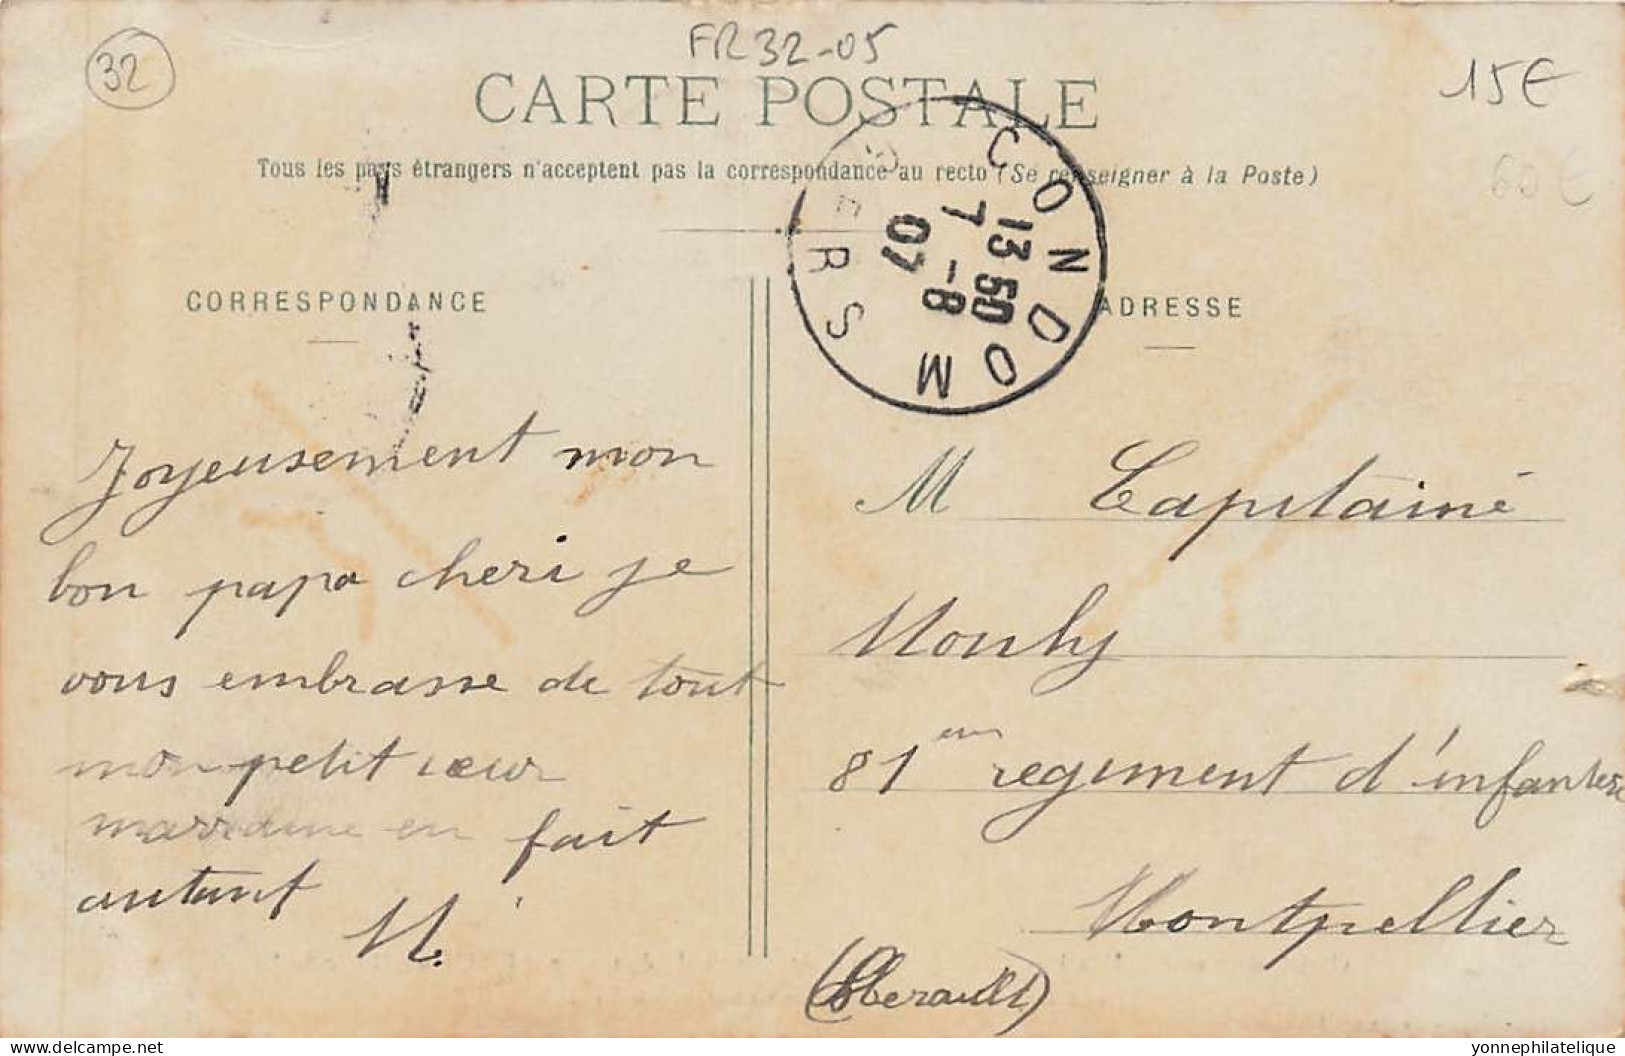 32
FR32-05
15€
60€
CARTE POSTALE
Tous les pays étrangers n'acceptent pas la correspondance au recto (Se renseigner à la Poste)
CONDOM
GERS
13 50
7 -8
07
CORRESPONDANCE
ADRESSE
Joyeusement mon
bon papa cheri je
vous embrasse de tout
mon petit cœur
marraine en fait
autant
M.
M Capitaine
Mouly
81eme regiment d'infanterie
Montpellier
(Herault)
delcampe.net
yonnephilatelique